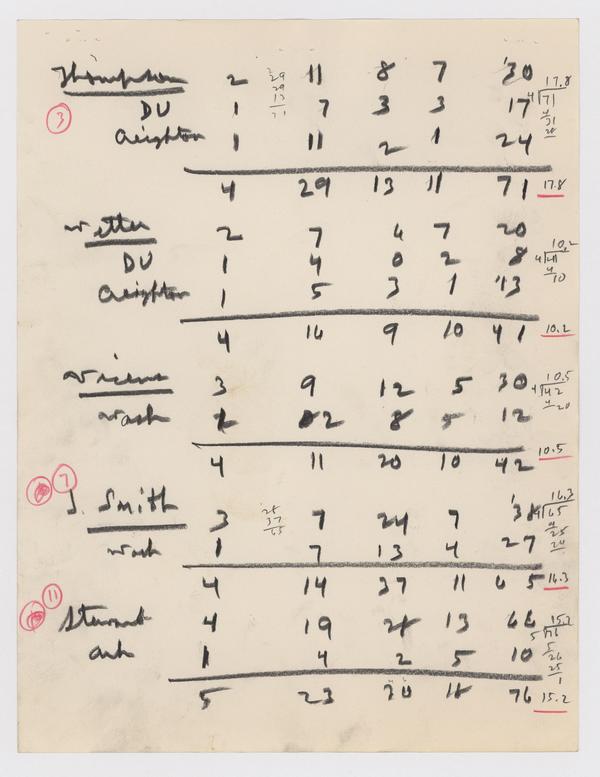 Thompson 2 11 8 7 30
DU 1 7 3 3 17
Creighton 1 11 2 1 24
3
29
29
13
71
17.8
4 71
4
31
28
4 29 13 11 71 17.8
Wetter 2 7 4 7 20
DU 1 4 0 2 8
Creighton 1 5 3 1 13
10.2
4 41
4
10
4 16 9 10 41 10.2
3 9 12 5 30
Wash 1 2 8 5 12
10.5
4 42
4
20
4 11 20 10 42 10.5
7
J. Smith 3 7 24 7 38
Wash 1 7 13 4 27
28
37
65
16.3
4 65
4
25
24
4 14 37 11 65 16.3
11
Stewart 4 19 13 66
Ark 1 4 2 5 10
15.2
5 76
5
26
25
1
5 23 30 18 76 15.2